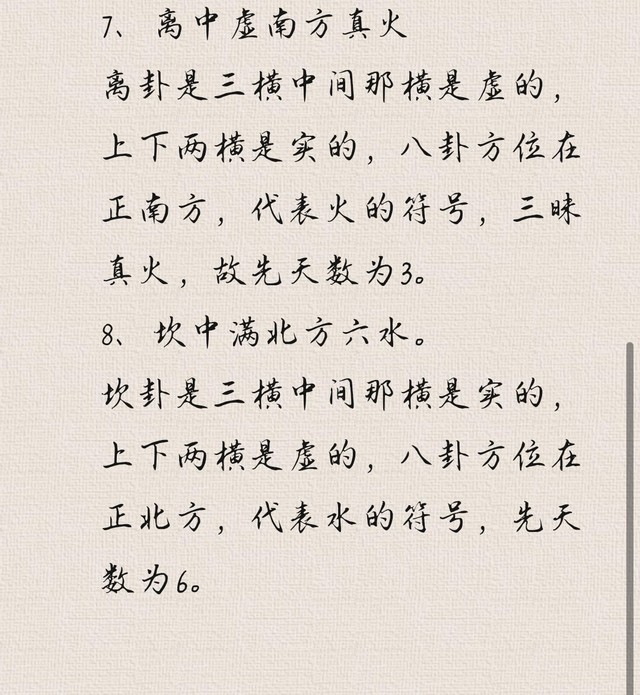 7、离中虚南方真火
离卦是三横中间那横是虚的，
上下两横是实的，八卦方位在
正南方，代表火的符号，三昧
真火，故先天数为3。
8、坎中满北方六水。
坎卦是三横中间那横是实的，
上下两横是虚的，八卦方位在
正北方，代表水的符号，先天
数为6。